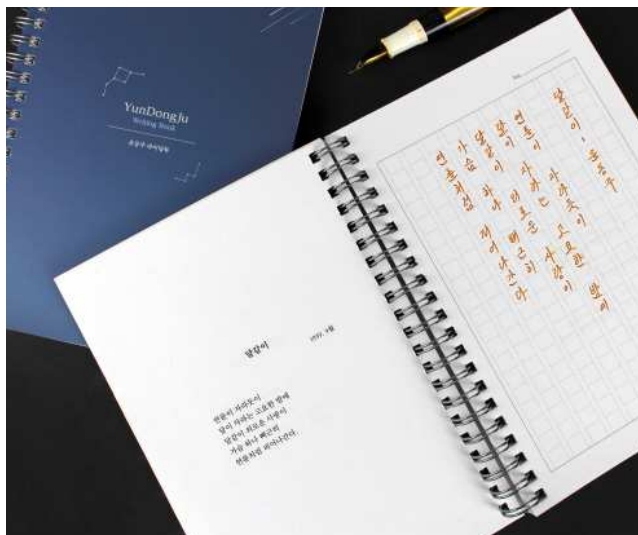 YunDongJu
Writing Book
윤동주
달같이
1939. 9월
연륜이 자라듯이
달이 자라는 고요한 밤에
달같이 외로운 사랑이
가슴 하나 뻐근히
연륜처럼 피어나간다.
달같이, 윤동주
연륜이 자라듯이
달이 자라는 고요한 밤에
달같이 외로운 사랑이
가슴 하나 뻐근히
연륜처럼 피어나간다